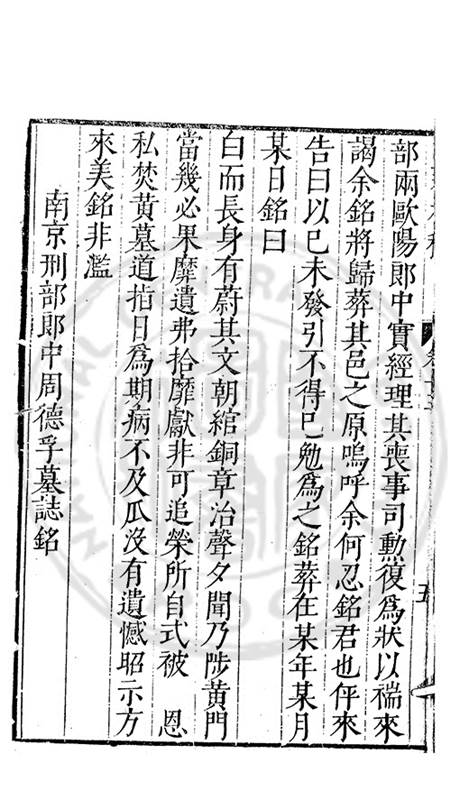 部兩歐陽郎中實經理其喪事司勲復爲狀以㡨來
謁余銘將歸葬其邑之原嗚呼余何忍銘君也伻來
告曰以巳未發引不得巳勉爲之銘葬在某年某月
某日銘曰
白而長身有蔚其文朝綰銅章治聲夕聞乃陟黃門
當幾必果靡遺弗拾靡獻非可追榮所自式被　恩
私焚黃墓道指日爲期病不及瓜沒有遺憾昭示方
來美銘非濫
南京刑部郎中周德孚墓誌銘
五